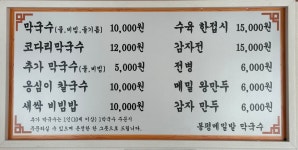 막국수(물,비빔,들기름) 10,000원
코다리막국수 12,000원
추가 막국수(물,비빔) 5,000원
옹심이 칼국수 10,000원
새싹 비빔밥 10,000원
추가 막국수는 1인(1)
수육 한접시 15,000원
감자전 15,000원
전병 6,000원
메밀 왕만두 6,000원
감자 만두 6,000원
봉평메밀밭 막국수